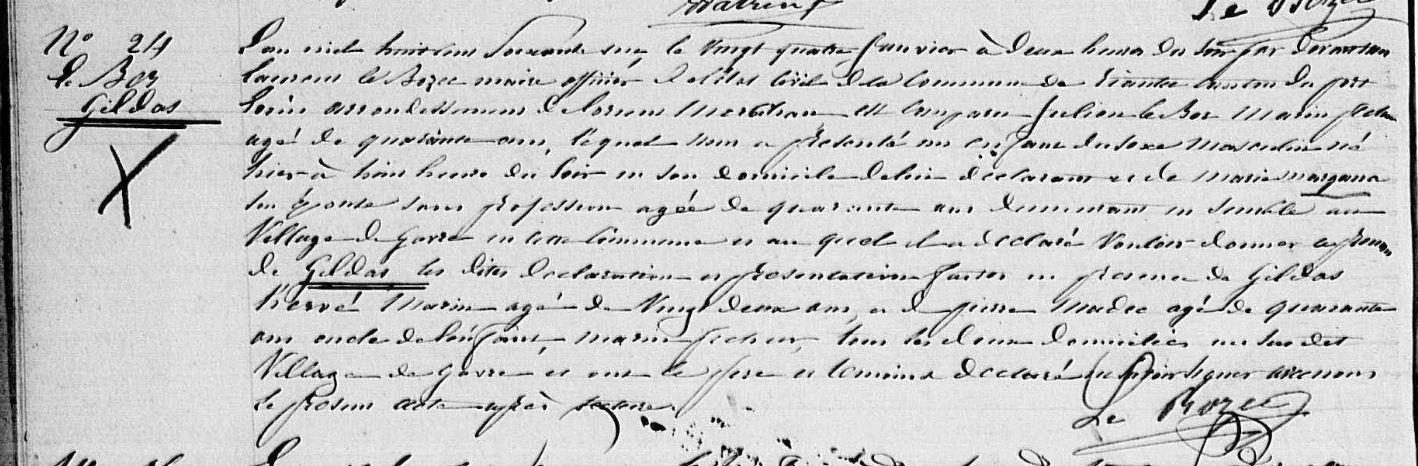 Le Bozec
N° 24 L'an mil huit cent Soixante six, le Vingt quatre Janvier à deux heures du soir par devant nous
Le Bez Laurent le Bozec maire officier de l'état civil de la Commune de Riantec Canton du port
Gildas Louis arrondissement de lorient Morbihan est comparu Julien le Bez Marin pecheur
agé de quarante ans, lequel nous a presenté un enfant du sexe Masculin né
hier à huit heures du soir en son domicile de lui déclarant et de Marie Margana
Son épouse sans profession agée de quarante ans demeurant en semble au
Village de Gavre en cette Commune et au quel il a déclaré Vouloir donner le prenom
de Gildas les dites declaration et presentation faites en presence de Gildas
hervé Marin agé de Vingt deux ans, et de pierre Madec agé de quarante
ans oncle de l'enfant, marin pecheur, tous les deux domiciliés au sus dit
Village de Gavre et ont le pere et temoins declaré ne savoir signer avec nous
le present acte après lecture.
Le Bozec